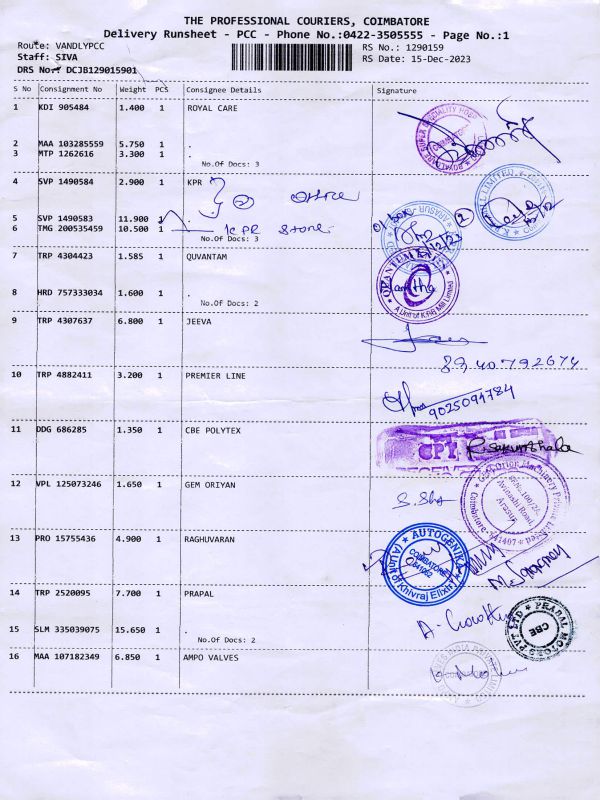 THE PROFESSIONAL COURIERS, COIMBATORE
Delivery Runsheet - PCC - Phone No.:0422-3505555 - Page No.:1
Route: VANDLYPCC RS No.: 1290159
Staff: SIVA RS Date: 15-Dec-2023
DRS No.: DCJB129015901
S No Consignment No Weight PCS Consignee Details Signature
1 KDI 905484 1.400 1 ROYAL CARE
2 MAA 103285559 5.750 1 .
3 MTP 1262616 3.300 1 .
No.Of Docs: 3
4 SVP 1490584 2.900 1 KPR
② office
5 SVP 1490583 11.900 1 .
6 TMG 200535459 10.500 1 KPR Store
No.Of Docs: 3
7 TRP 4304423 1.585 1 QUVANTAM
8 HRD 757333034 1.600 1 .
No.Of Docs: 2
A Unit of K.P.R Mill Limited
9 TRP 4307637 6.800 1 JEEVA
8940792674
10 TRP 4882411 3.200 1 PREMIER LINE
9025091784
11 DDG 686285 1.350 1 CBE POLYTEX
CPT
12 VPL 125073246 1.650 1 GEM ORIYAN
Avinashi Road,
Arasur
13 PRO 15755436 4.900 1 RAGHUVARAN
AUTOGENIKA
COIMBATORE
(A Unit of Khivraj Elixir)
14 TRP 2520095 7.700 1 PRAPAL
15 SLM 335039075 15.650 1 .
No.Of Docs: 2
PRABAL MOTORS PVT LTD
CBE
16 MAA 107182349 6.850 1 AMPO VALVES